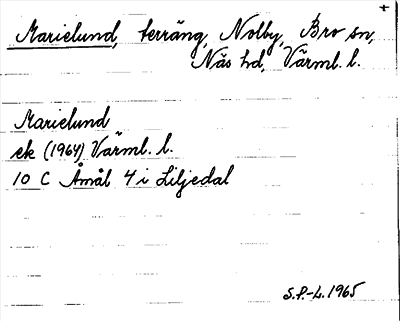 +
Marielund, terräng, Nolby, Bro sn,
Näs hd, Värml. l.
Marielund
ek (1964) Värml. l.
10 C Åmål 4 i Liljedal
S.P.-L. 1965